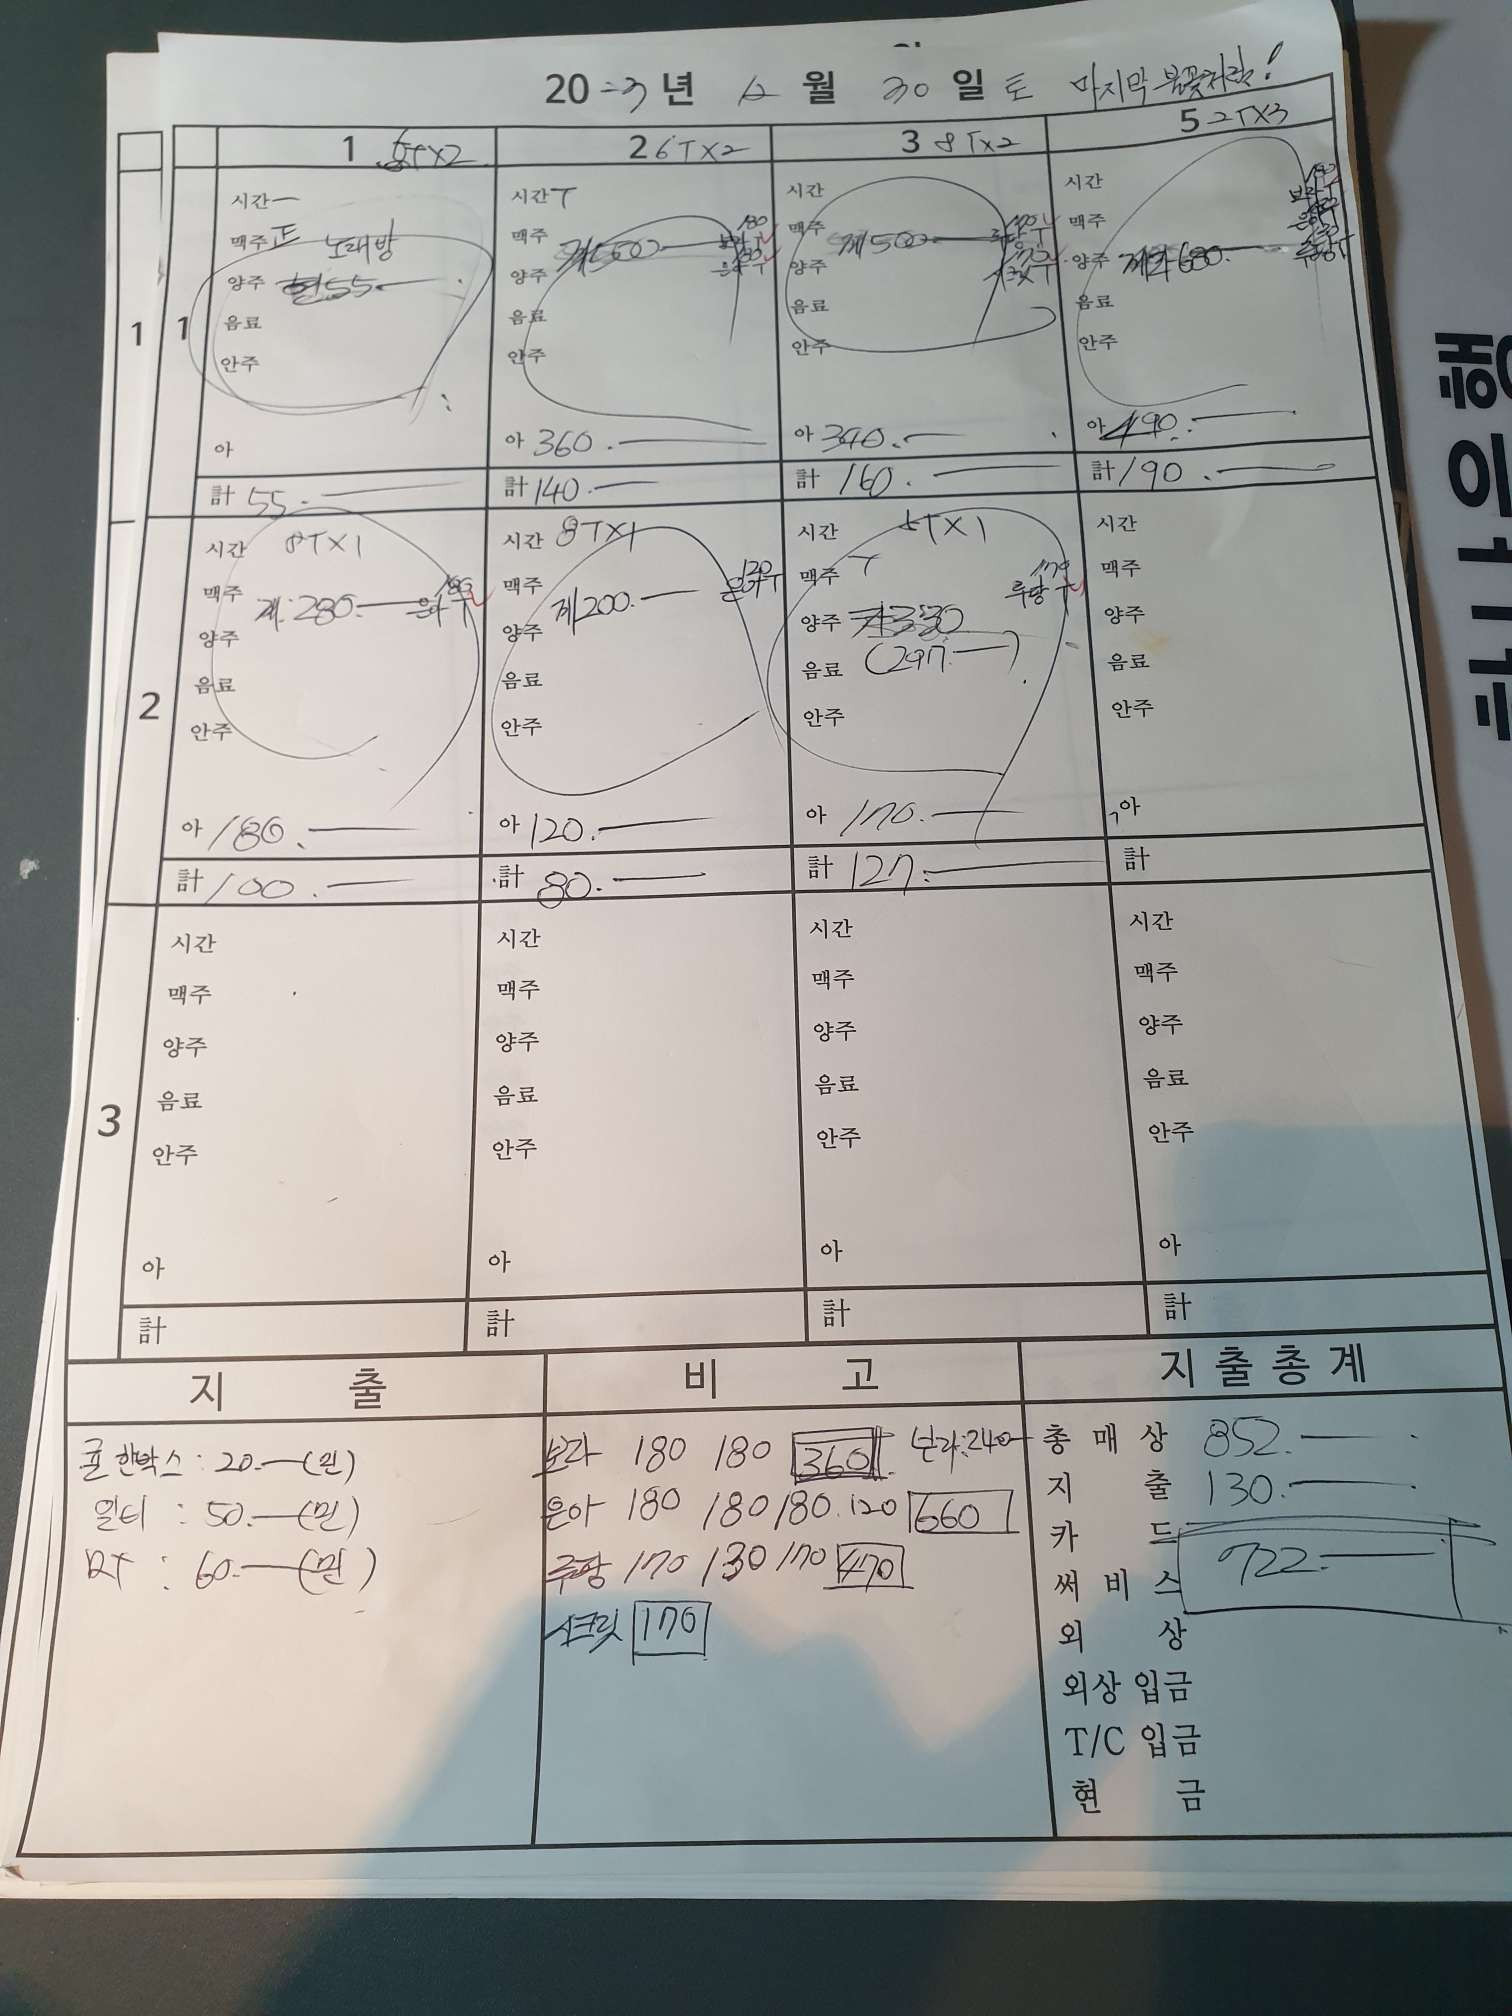 20 23 년 12 월 30 일 토 마지막 불꽃처럼!
1 5TX2
2 6TX2
3 8TX2
5 2TX3
1
1
시간 一
맥주 正 노래방
양주 현55.—
음료
안주
아
計 55.—
시간 T
맥주 계500— 180 보라
양주 180 은아
음료
안주
아 360.—
計 140.—
시간
맥주 계500— 170 루팡
양주 170 시크릿
음료
안주
아 340.—
計 160.—
시간
맥주 보라
양주 680.— 루팡
음료
안주
아 490.—
計 190.—
2
시간 8TX1
맥주 계.280.— 180 은아
양주
음료
안주
아 180.—
計 100.—
시간 8TX1
맥주 계200.— 120 은아
양주
음료
안주
아 120.—
計 80.—
시간 6TX1
맥주 T 170 루팡
양주 카330
음료 (297.—)
안주
아 170.—
計 127.—
시간
맥주
양주
음료
안주
아
計
3
시간
맥주
양주
음료
안주
아
計
시간
맥주
양주
음료
안주
아
計
시간
맥주
양주
음료
안주
아
計
시간
맥주
양주
음료
안주
아
計
지 출
귤 한박스 : 20.—(민)
일티 : 50.—(민)
: 60.—(민)
비 고
보라 180 180 360 보라:240—
은아 180 180 180. 120 660
루팡 170 130 170 470
시크릿 170
지출총계
총 매 상 852.—
지 출 130.—
카 드 722.—
써 비 스
외 상
외상 입금
T/C 입금
현 금
행